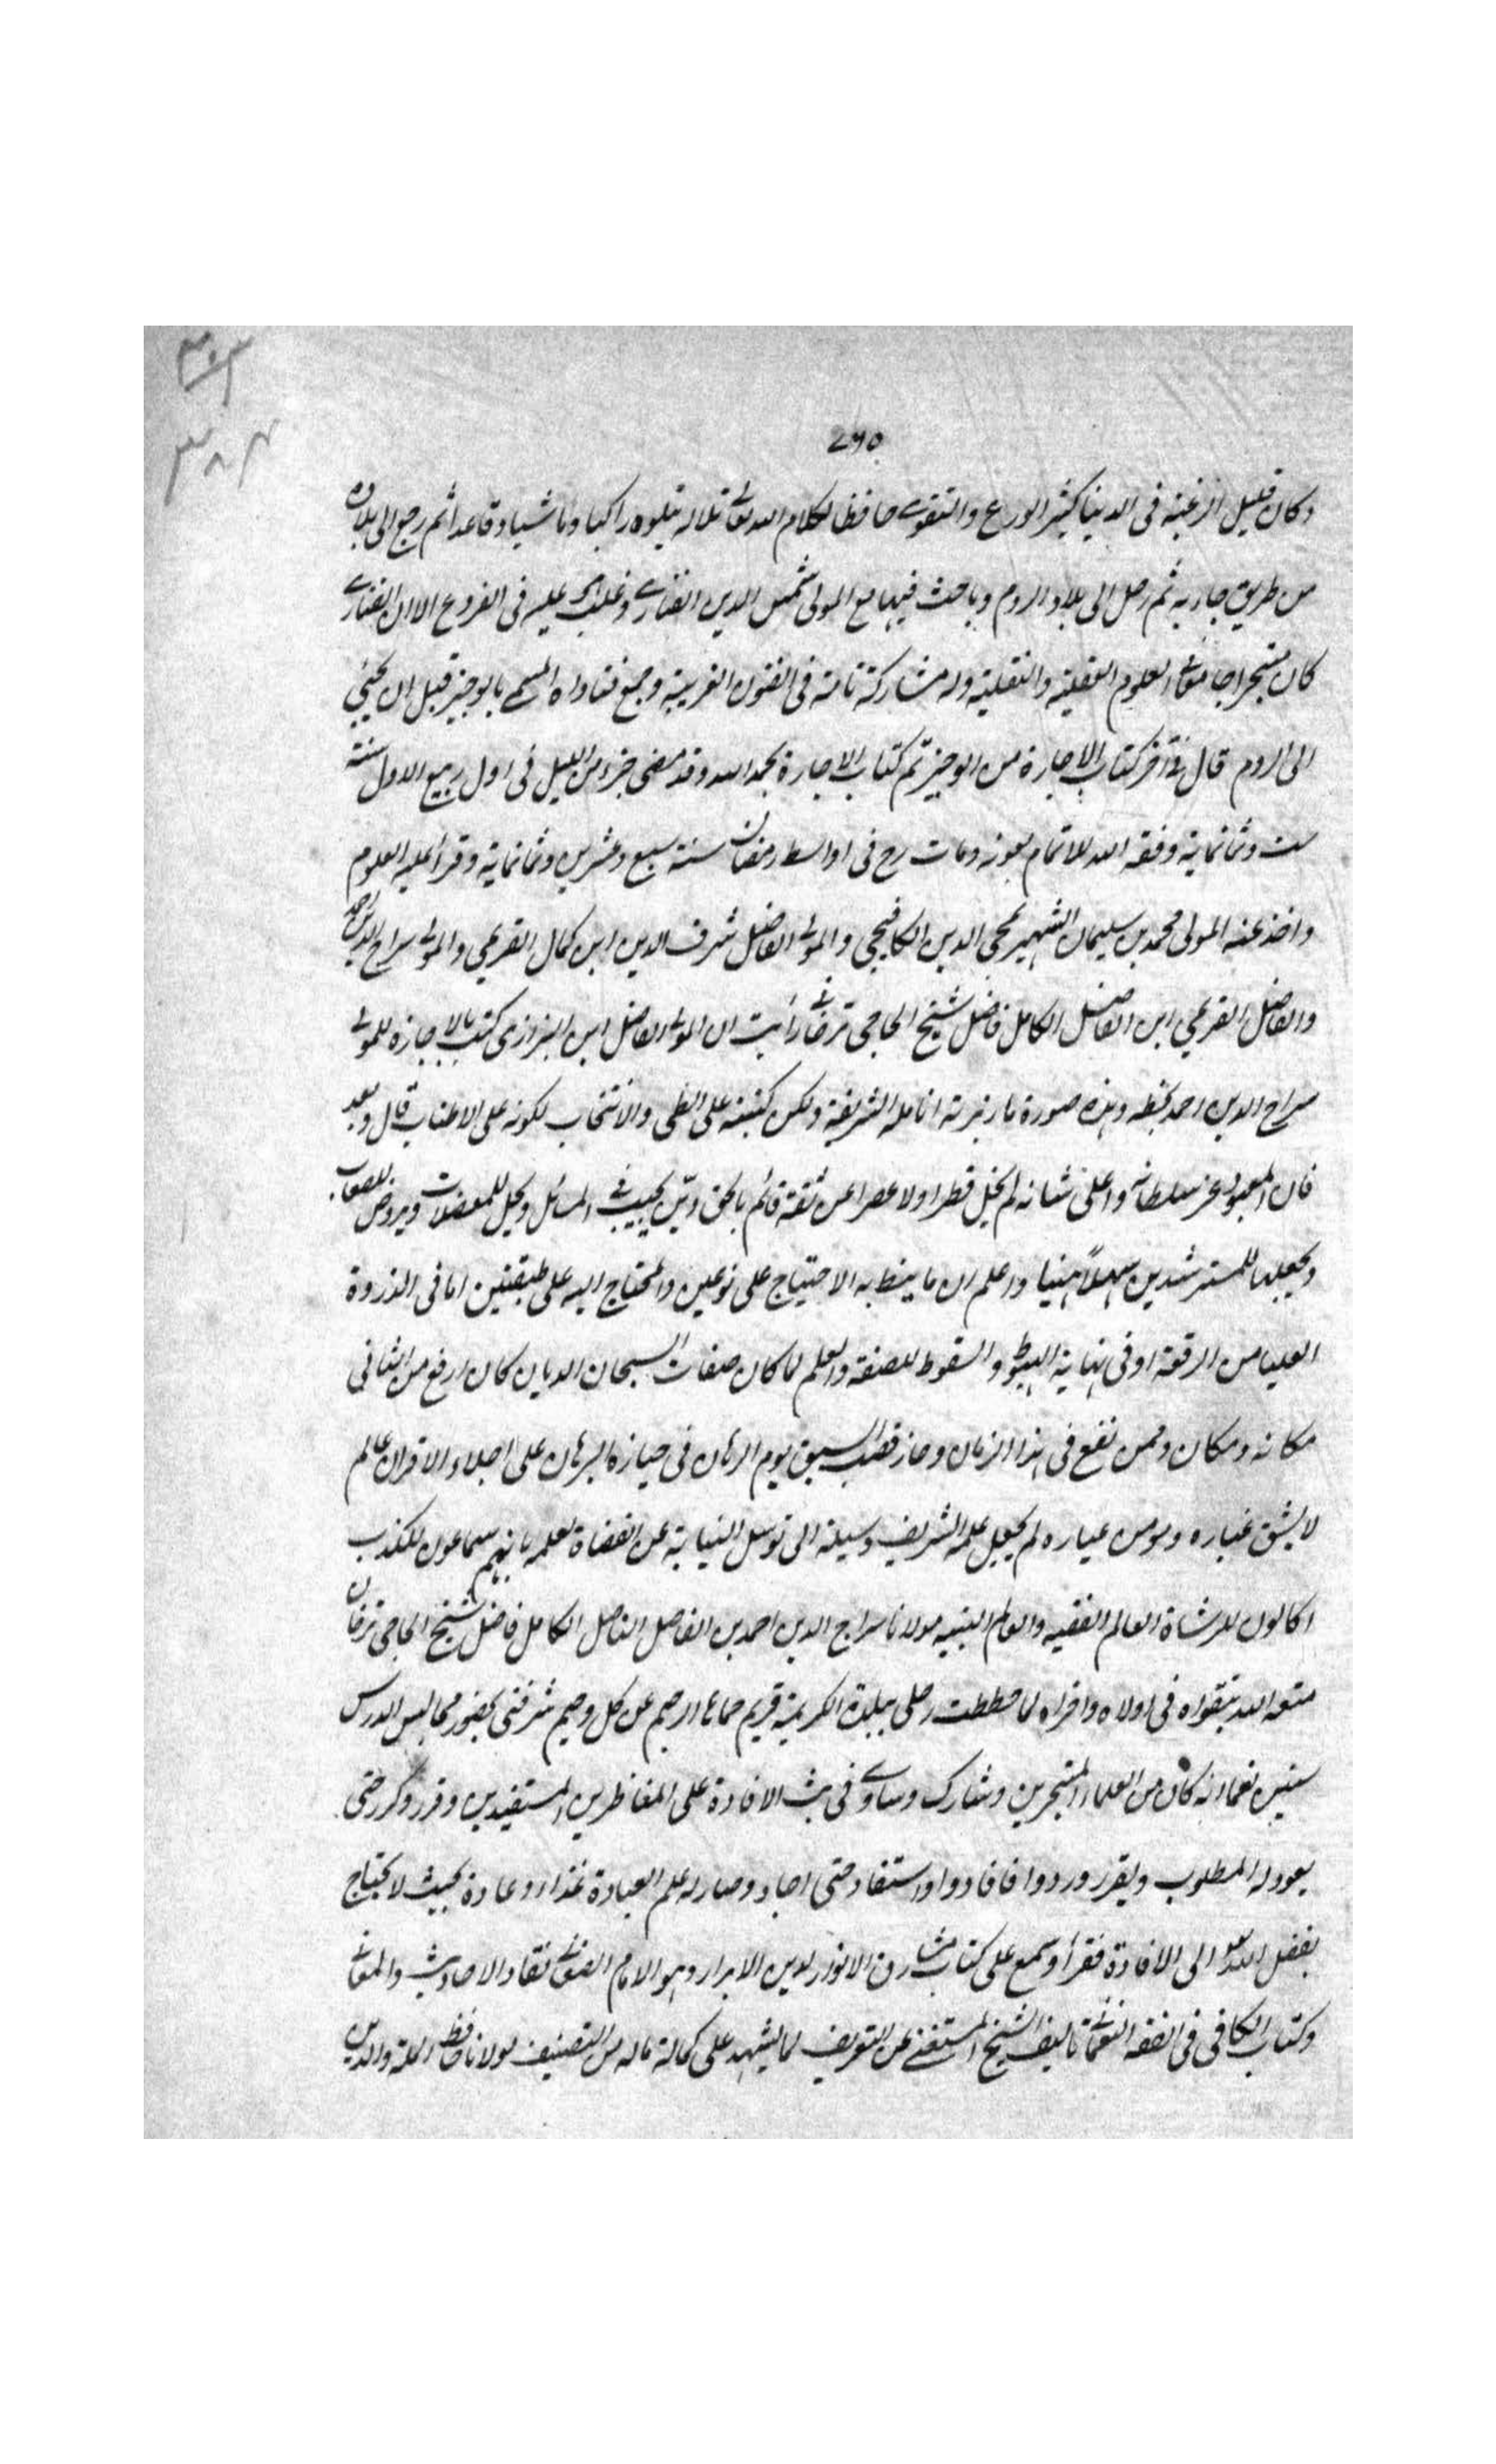 ٣٠٣
٣٨٤
٢٦٥
وكان قليل الرغبة فى الدنيا كثير الورع والتقوى حافظا لكلام الله تعالى تلاله يتلوه راكبا وماشيا وقاعدا ثم رجع الى بلاده
من طريق جاربه ثم رحل الى بلاد الروم وباحث فيها مع المولى شمس الدين الفنارى وغلب عليه فى الفروع الا ان الفنارى
كان متبحرا جامعا العلوم العقلية والنقلية وله مشاركة تامة فى الفنون الغريبة وجمع فتاواه المسمى بالوجيز قبل ان يجئ
الى الروم قال فى آخر كتاب الاجارة من الوجيز تم كتاب الاجارة بحمد الله وقد مضى جزء من الليل فى اول ربيع الاول سنة
ست وثمانماية وفقه الله للاتمام بعونه ومات رح فى اواسط رمضان سنة سبع وعشرين وثمانماية وقرأ عليه العلوم
واخذ عنه المولى محمد بن سليمان الشهير بمحى الدين الكافيجى والمولى الفاضل شرف الدين ابن كمال القريمى والمولى سراج الدين احمد
والفاضل القريمى ابن الفاضل الكامل فاضل شيخ الحاجى ترخانى رأيت ان المولى الفاضل ابن البزازى كتب بالاجازة للمولى
سراج الدين احمد بخطه وهذه صورة ما زبرته انامله الشريفة ولكن كتبته على الطى والانتخاب لكونه على الاطناب قال وبعد
فان المعبود عز سلطانه واعلى شانه لم يخل قطرا ولا عصرا عن ثقة قائم بالحق ديّن يجيب فى المسائل ويحل للمعضلات ويروض للصعاب
ويجعلها للمسترشدين سهلاً هنيا واعلم ان ما ينط به الاحتياج على نوعين والمحتاج اليه على طبقتين اما فى الذروة
العليا من الرفعة او فى نهاية الهبوط والسقوط للصنعة والعلم لما كان صفات السبحان الديان كان ارفع من الثانى
مكانه ومكان وممن نفع فى هذا الزمان وحاز قصب السبق يوم الرهان فى حيازة البرهان على اجلاء الاقران عالم
لا يشق غباره ومومن عياره لم يجعل علمه الشريف وسيلة الى توسل النيابة عن القضاة لعلمه بانهم سماعون للكذب
اكالون للرشاة العالم الفقيه والعالم النبيه مولانا سراج الدين احمد بن الفاضل الفاضل الكامل فاضل شيخ الحاجى ترخان
متعه الله بتقواه فى اولاه واخراه لما حططت رحلى ببلدة الكريمة قريم حماها الرحيم عن كل وصيم شرفنى بحضور مجالس الدرس
سنين مع انه كان من العلماء المتبحرين وشارك وساوى فى بث الافادة على المناظرين المستفيدين وقرر وكرر حتى
يعود له المطلوب ويقرر ورددوا فافادوا واستفاد حتى اجاد وصار له علم العبادة غذا وعادة بحيث لا يحتاج
بفضل الله تعالى الى الافادة فقرأ وسمع على كتاب مشارق الانوار لدين الابرار وهو الامام الصغانى نقاد الاحاديث والمعانى
وكتاب الكافى فى الفقه النعمانى تاليف الشيخ المستغنى عن التعريف لما يشهد على كماله ماله من التصنيف مولانا حافظ الملة والدين